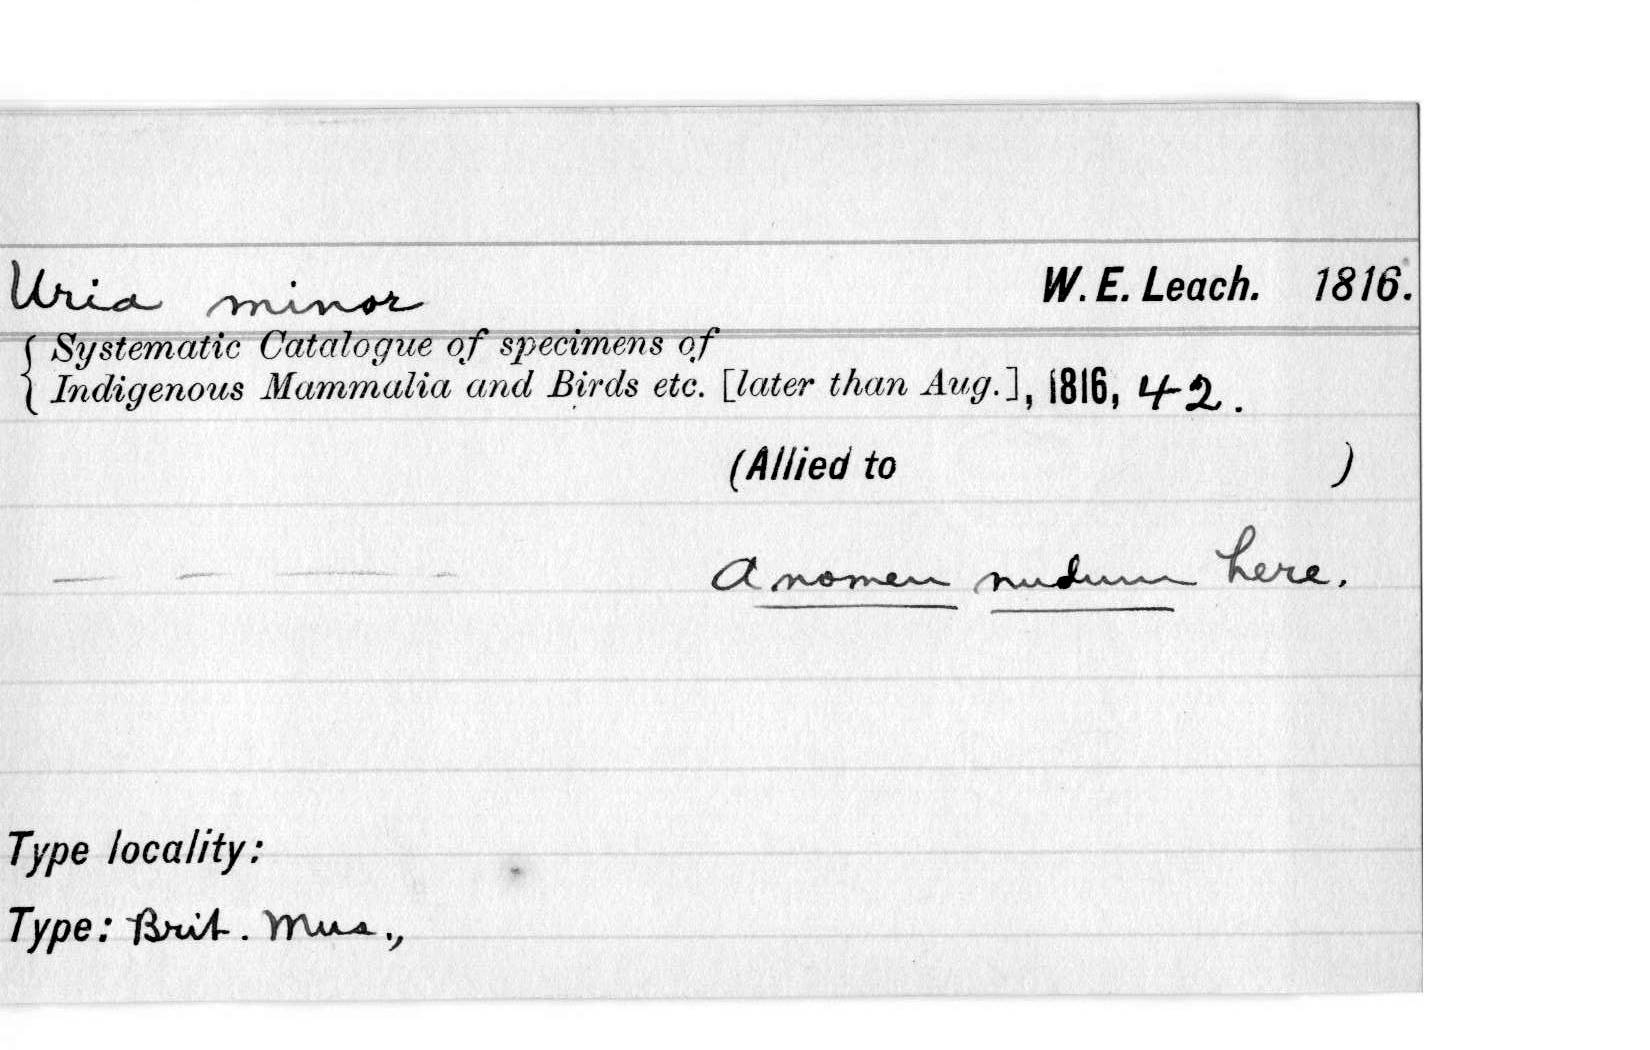 Uria minor W. E. Leach. 1816.
{ Systematic Catalogue of specimens of
Indigenous Mammalia and Birds etc. [later than Aug.], 1816, 42.
(Allied to )
A nomen nudum here.
Type locality:
Type: Brit. Mus.,